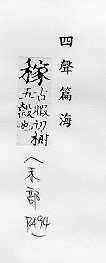 四聲篇海
稼 古暇切樹
五穀也
(禾部 P.494)